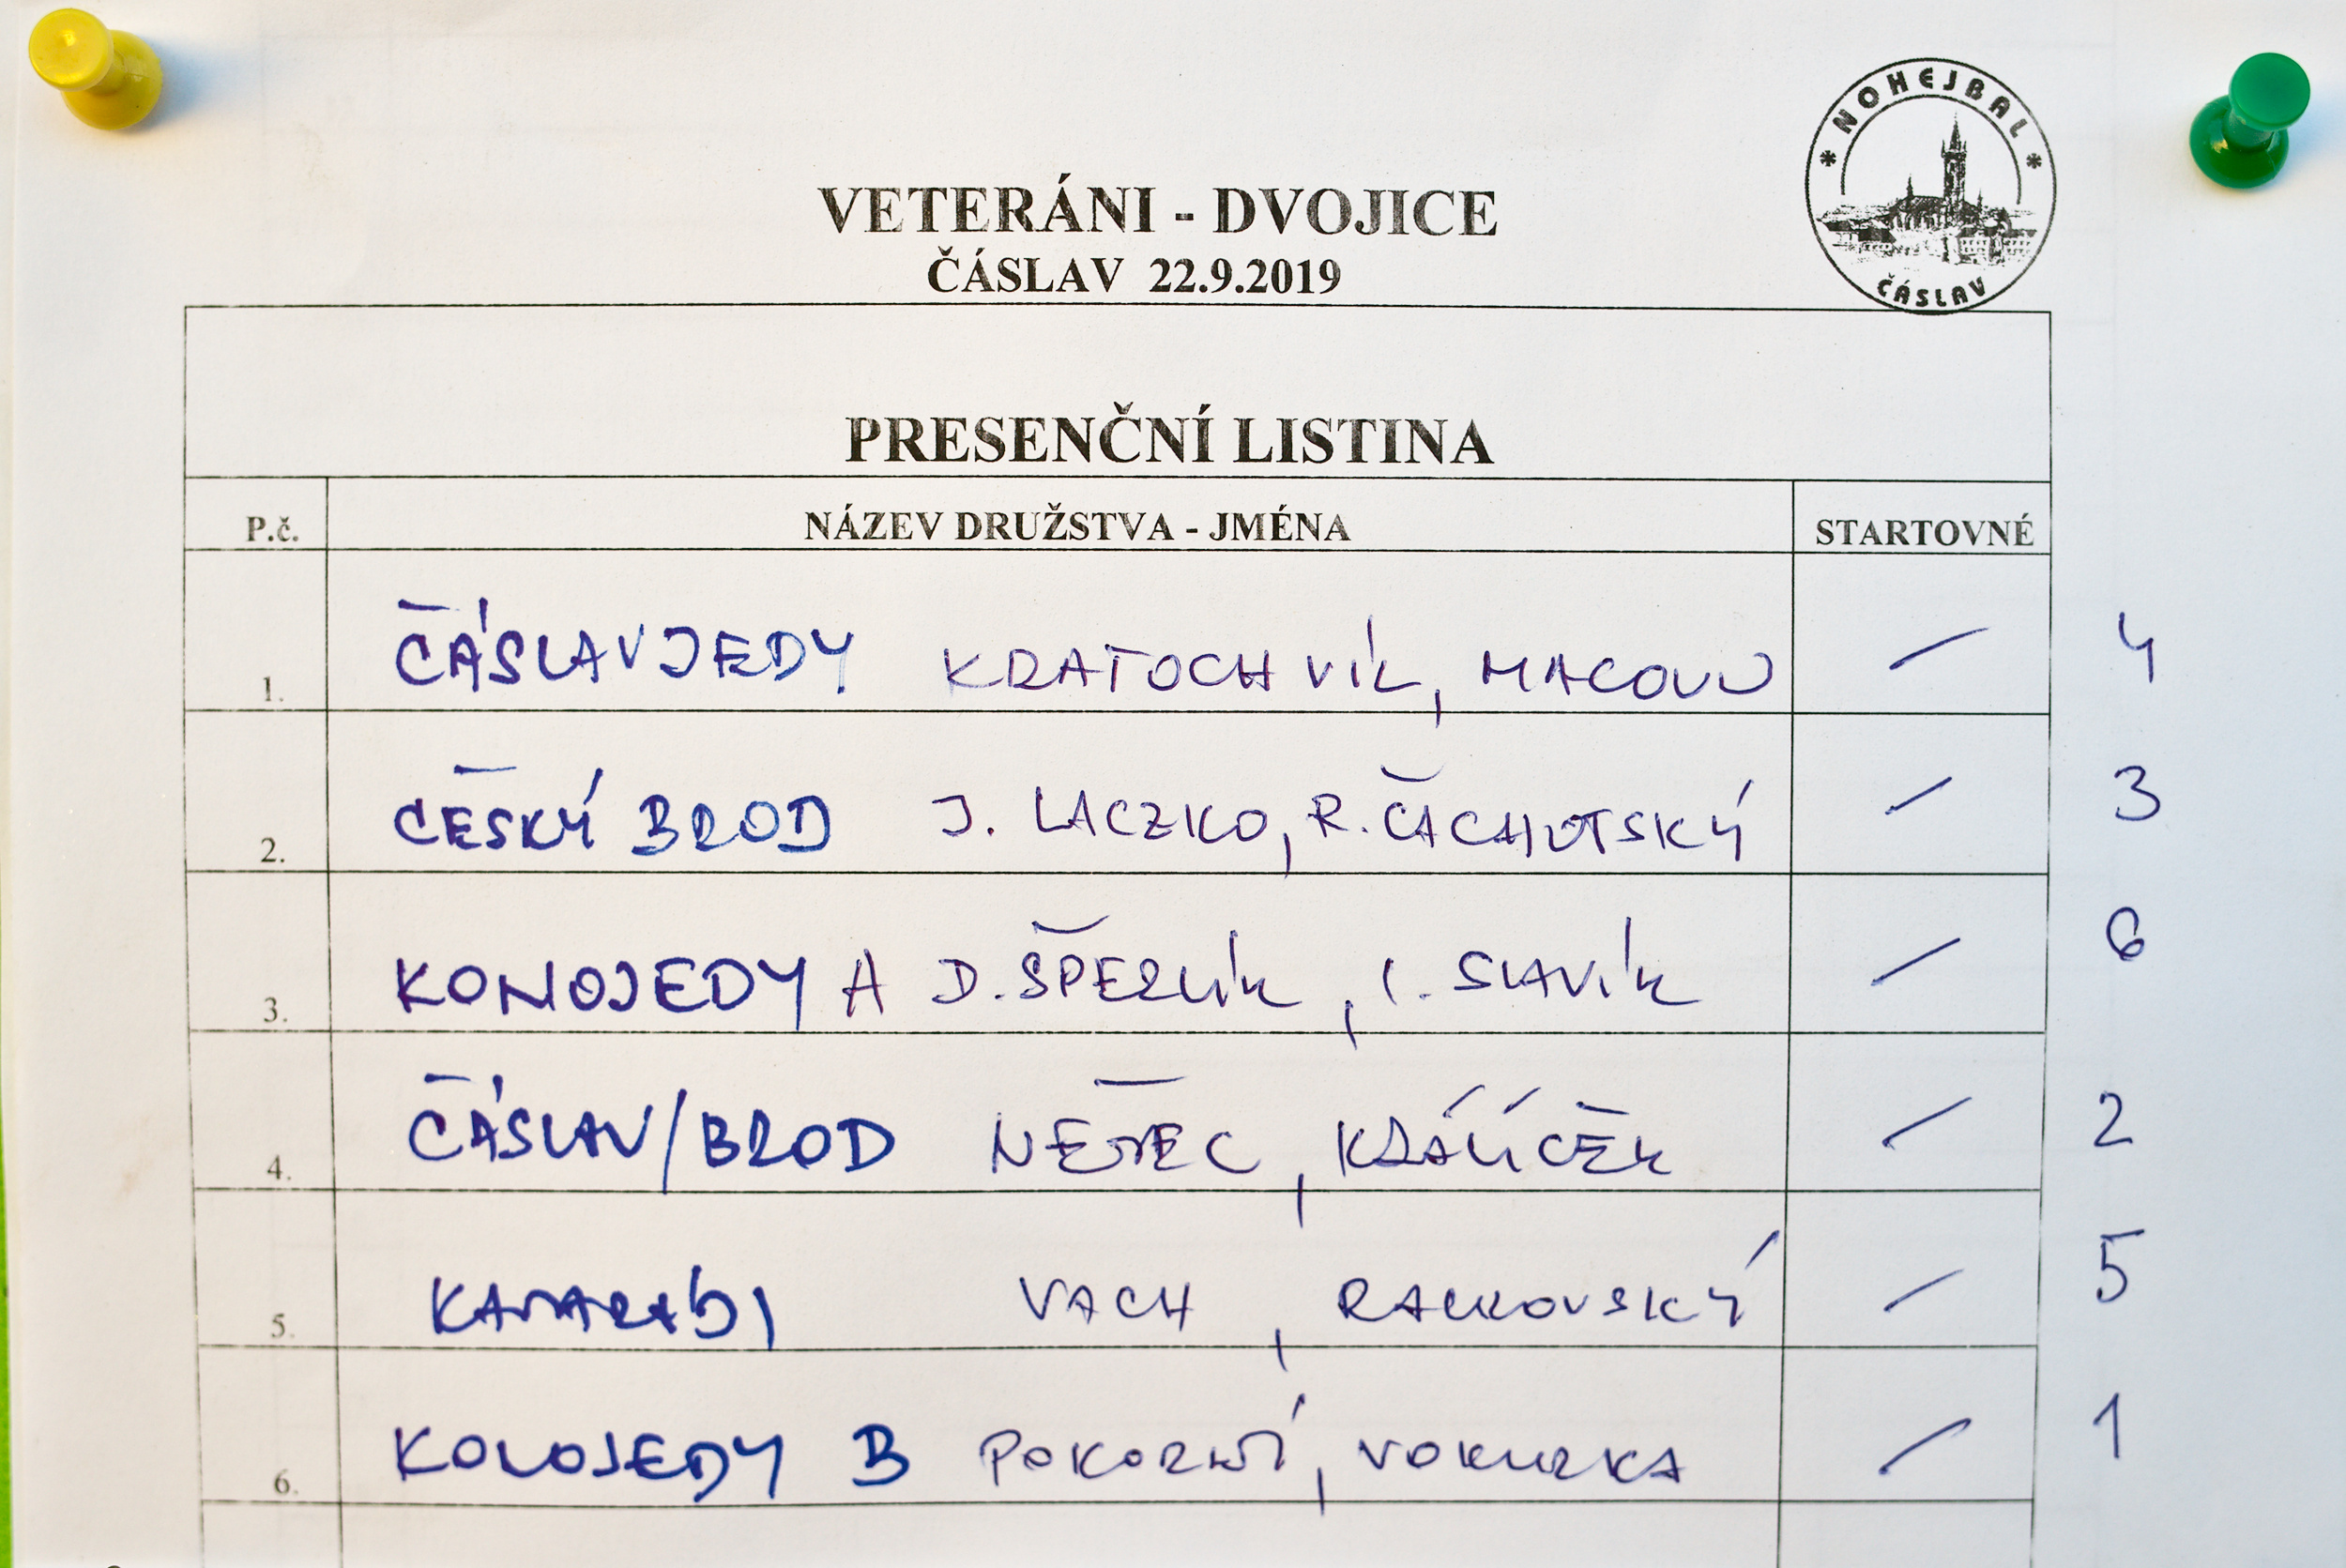 NOHEJBAL
ČÁSLAV
VETERÁNI - DVOJICE
ČÁSLAV 22.9.2019
PRESENČNÍ LISTINA
P.č. NÁZEV DRUŽSTVA - JMÉNA STARTOVNÉ
1. ČÁSLAVJEDY KRATOCHVÍL, MACOUN 4
2. ČESKÝ BROD J. LACZKO, R. ČACHOTSKÝ 3
3. KONOJEDY A D. ŠPERLÍK, I. SLAVÍK 6
4. ČÁSLAV/BROD NĚMEC, KRÁLÍČEK 2
5. KAMARÁDI VACH, RAKOVSKÝ 5
6. KONOJEDY B POKORNÝ, VOKURKA 1